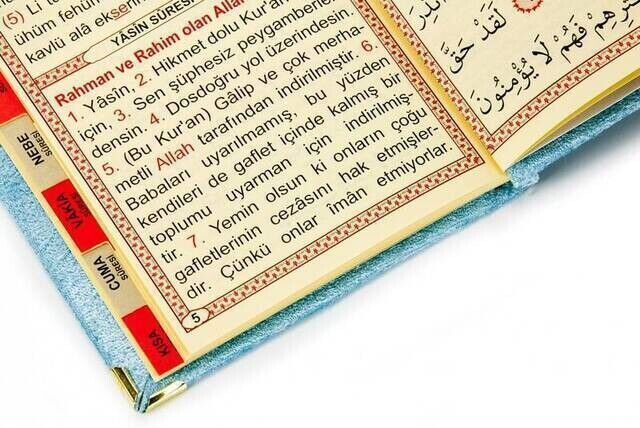 (5) Li t
ühüm fehüm
kavlü alâ ekserih
YÂSİN SÛRESİ
Rahman ve Rahim olan Allah
1. Yâsîn, 2. Hikmet dolu Kur'an
için, 3. Sen şüphesiz peygamberler
densin. 4. Dosdoğru yol üzerindesin.
5. (Bu Kur'an) Gâlip ve çok merha-
metli Allah tarafından indirilmiştir. 6.
Babaları uyarılmamış, bu yüzden
kendileri de gaflet içinde kalmış bir
toplumu uyarman için indirilmiş-
tir. 7. Yemin olsun ki onların çoğu
gafletlerinin cezâsını hak etmişler-
dir. Çünkü onlar imân etmiyorlar.
5
NEBE
SÛRESİ
VÂKIA
SÛRESİ
CUMA
SÛRESİ
KISA
لَقَدْ حَقَّ
فَهُمْ لَا يُؤْمِنُونَ